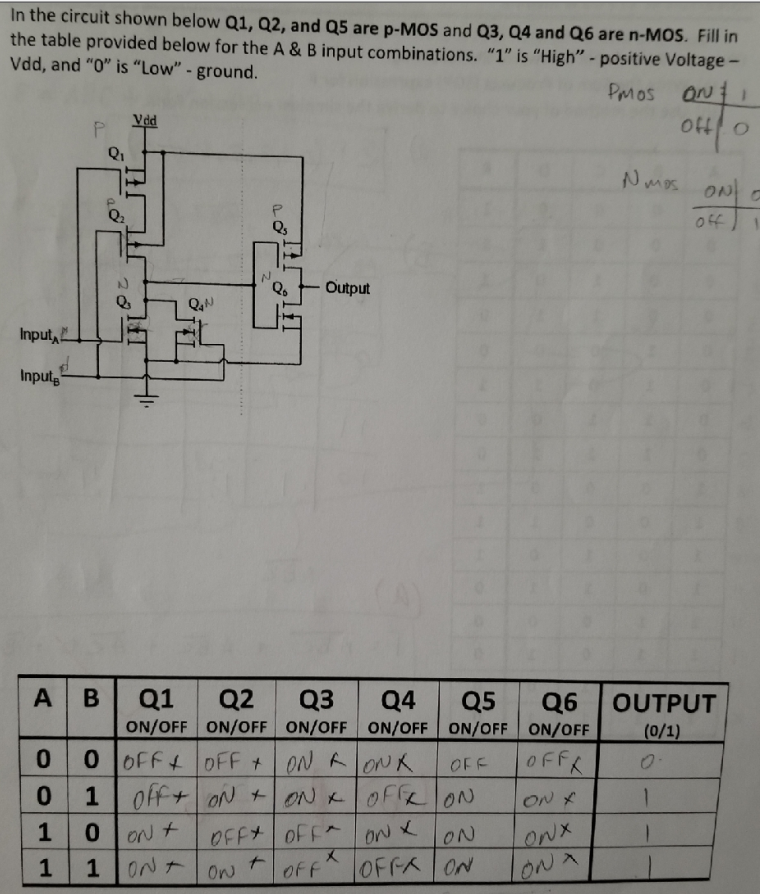 In the circuit shown below Q1, Q2, and Q5 are p-MOS and Q3, Q4 and Q6 are n-MOS. Fill in
the table provided below for the A & B input combinations. "1" is "High" - positive Voltage –
Vdd, and "0" is "Low" - ground.
Pmos ON 1
OFF 0
Nmos ON 0
off 1
P Vdd
Q1
P
Q2
P
Q5
N
Q3
Q4 N
N
Q6
Output
InputA
InputB
A B Q1 Q2 Q3 Q4 Q5 Q6 OUTPUT
ON/OFF ON/OFF ON/OFF ON/OFF ON/OFF ON/OFF (0/1)
0 0 OFF x OFF x ON x ON x OFF OFF x 0
0 1 OFF x ON x ON x OFF x ON ON x 1
1 0 ON x OFF x OFF x ON x ON ON x 1
1 1 ON x ON x OFF x OFF x ON ON x 1